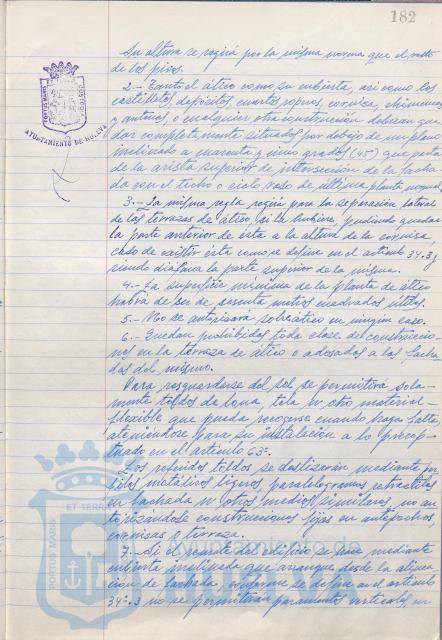 182
Su altura se regirá por la misma norma que el resto
de los pisos.
2.- Tanto el ático como su cubierta, así como los
castilletes, depósitos, cuartos roperos, cornisa, chimeneas
y antenas, o cualquier otra construcción deberán que
dar completamente situados por debajo de un plano
inclinado a cuarenta y cinco grados (45º) que parta
de la arista superior de intersección de la facha
da con el techo o cielo raso de última planta normal
3.- La misma regla regirá para la separación lateral
de las terrazas de ático si la hubiere, pudiendo quedar
la parte anterior de ésta a la altura de la cornisa,
caso de existir ésta como se define en el artículo 34.3 y
siendo diáfana la parte superior de la misma.
4.- La superficie mínima de la planta de ático
habrá de ser de sesenta metros cuadrados útiles.
5.- No se autorizará sobreático en ningún caso.
6.- Quedan prohibidas toda clase de construccio-
nes en la terraza de ático o adosados a las facha
das del mismo.
Para resguardarse del sol se permitirá sola-
mente toldos de lona, tela u otro material
flexible que pueda recogerse cuando haga falta,
ateniéndose para su instalación a lo precep-
tuado en el artículo 63º.
Los referidos toldos se deslizarán mediante per
files metálicos ligeros, paralelogramos retráctiles
en fachada u otros medios similares, no au
torizándose construcciones fijas en antepechos
cornisas y terraza.
7.- Si el remate del edificio se hace mediante
cubierta inclinada que arranque desde la alinea
ción de fachada, conforme se define en el artículo
34º.3 no se permitirán paramentos verticales, en
AYUNTAMIENTO DE HUELVA
PORTUS MARIS
ET TERRAE
Ayuntamiento de
HUELVA